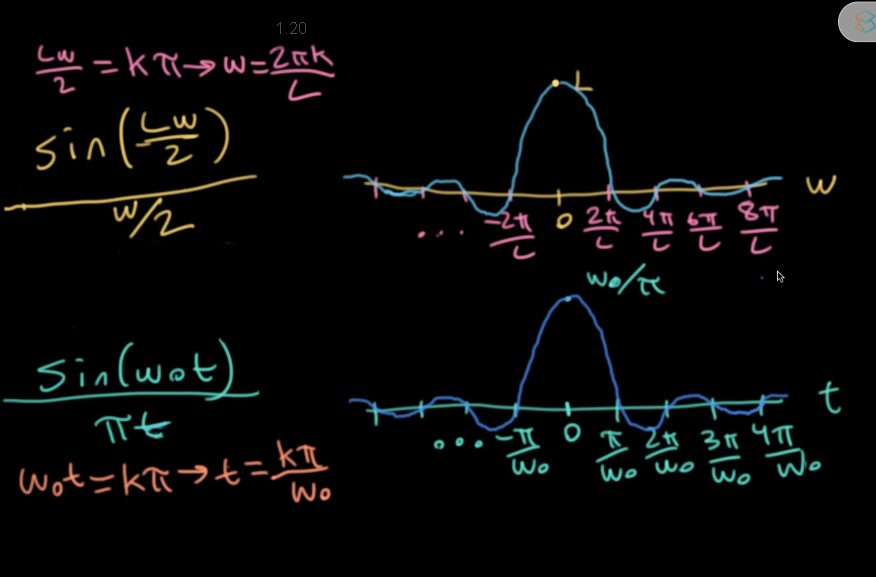 1.20
Lw/2 = kπ → w = 2πk/L
sin(Lw/2)
w/2
L
w
... -2π/L 0 2π/L 4π/L 6π/L 8π/L
w₀/π
sin(w₀t)
πt
t
... -π/w₀ 0 π/w₀ 2π/w₀ 3π/w₀ 4π/w₀
w₀t = kπ → t = kπ/w₀